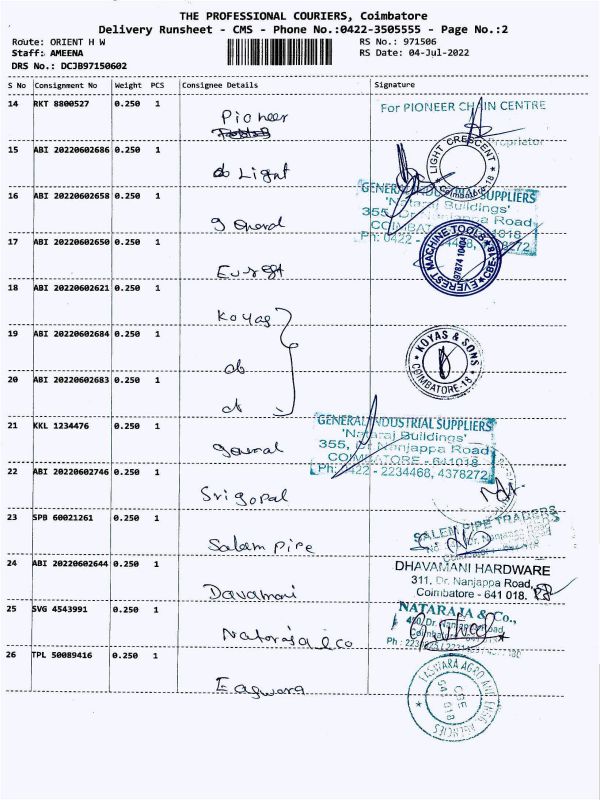 THE PROFESSIONAL COURIERS, Coimbatore
Delivery Runsheet - CMS - Phone No.:0422-3505555 - Page No.:2
Route: ORIENT H W
RS No.: 971506
Staff: AMEENA
RS Date: 04-Jul-2022
DRS No.: DCJB97150602
S No Consignment No Weight PCS Consignee Details Signature
14 RKT 8800527 0.250 1 Pioneer
For PIONEER CHAIN CENTRE
Proprietor
15 ABI 20220602686 0.250 1 do Light
LIGHT CRESCENT
Coimbatore-18
16 ABI 20220602658 0.250 1 general
GENERAL INDUSTRIAL SUPPLIERS
'Nataraj Buildings'
355, Dr. Nanjappa Road
COIMBATORE - 641018
Ph: 0422 - 2234468, 4378272
17 ABI 20220602650 0.250 1 Everest
EVEREST MACHINE TOOLS
CBE-18
18 ABI 20220602621 0.250 1 Koyas
19 ABI 20220602684 0.250 1 do
KOYAS & SONS
COIMBATORE-18
20 ABI 20220602683 0.250 1 do
21 KKL 1234476 0.250 1 general
GENERAL INDUSTRIAL SUPPLIERS
'Nataraj Buildings'
355, Dr. Nanjappa Road
COIMBATORE - 641018
Ph: 0422 - 2234468, 4378272
22 ABI 20220602746 0.250 1 Sri gopal
23 SPB 60021261 0.250 1 Salem pipe
SALEM PIPE TRADERS
Dr. Nanjappa Road
24 ABI 20220602644 0.250 1 Davamani
DHAVAMANI HARDWARE
311, Dr. Nanjappa Road,
Coimbatore - 641 018.
25 SVG 4543991 0.250 1 Nataraja & co
NATARAJA & Co.,
Dr. Nanjappa Road,
26 TPL 50089416 0.250 1 Eagwara
EASWARA AGRO AND ENGG. AGENCIES
CBE
641 018